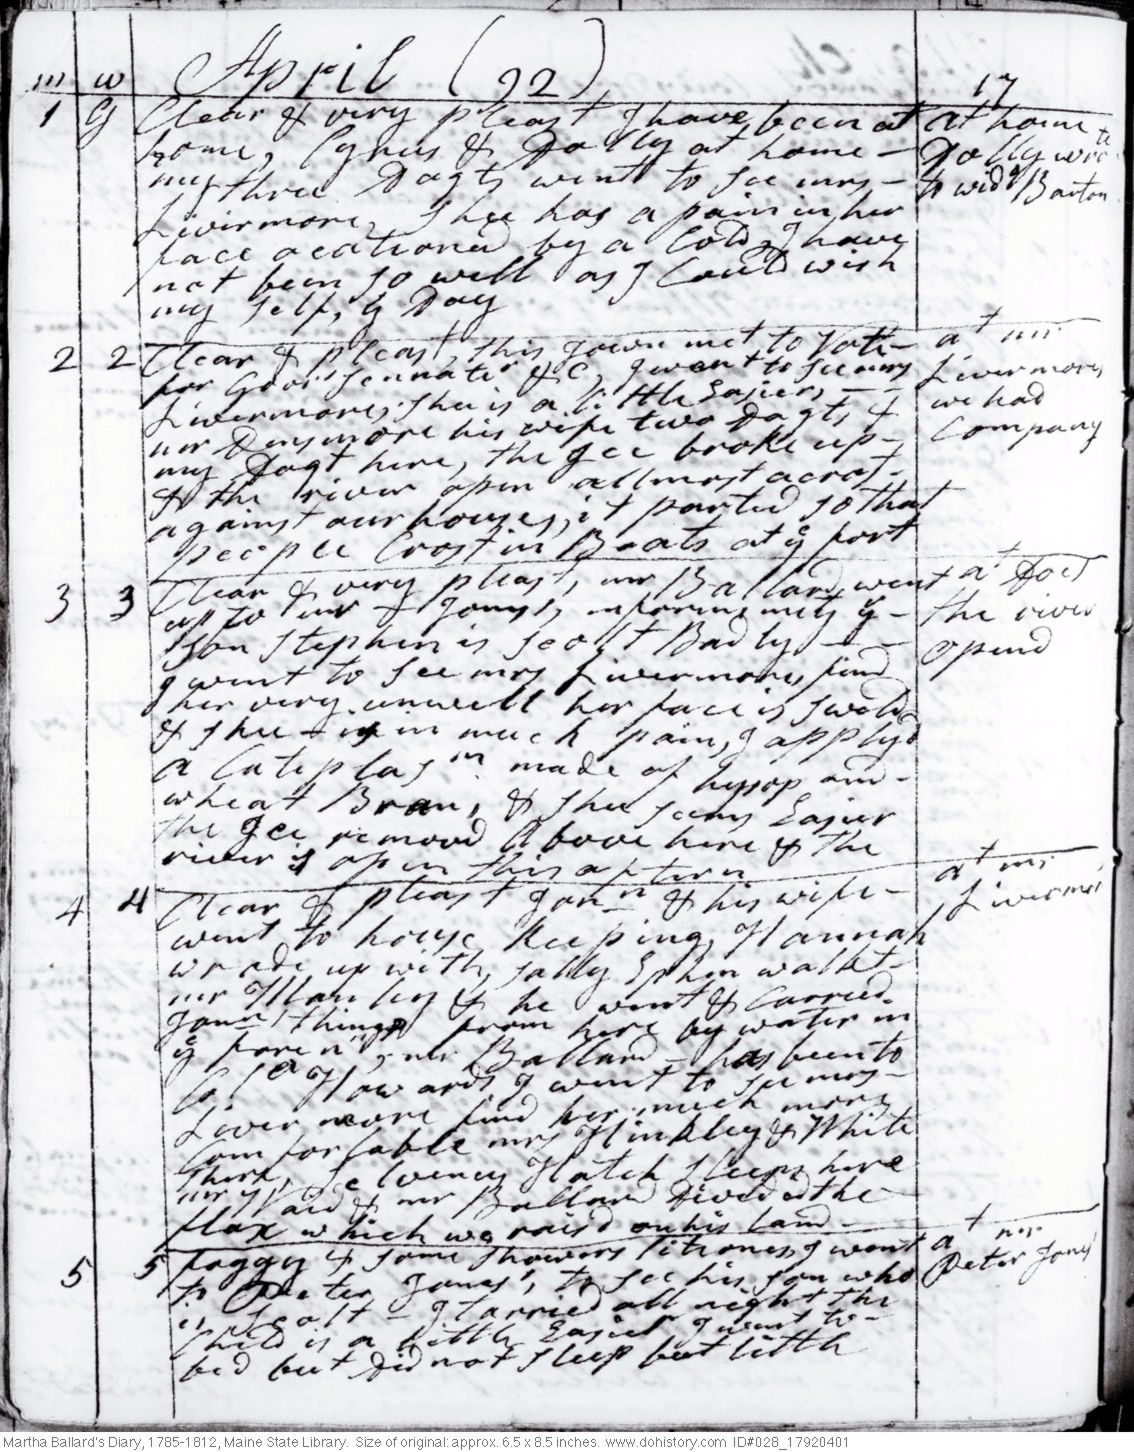 m w April (92) 17
1 G Clear & very pleast I have been at
home, Cyrus & Dolly at home -
my three Dagts went to see mrs -
Livermore, Shee has a pain in her
face ocationed by a Cold, I have
not been so well as I Could wish
my self, G Day
at home
Dolly wrote
to wid Barton
2 2 Clear & pleast, this Town met to Vote -
for Govr Sennater &C, I went to see mrs
Livermore, Shee is a little Easier, -
mr Densmore his wife two Dagts &
my Dagt here, the Ice broke up -
& the river open allmost acrost -
against our house, it parted so that
people Crost in Boats at ye fort
at mr
Livermores
we had
Company
3 3 Clear & very pleast, mr Ballard went
up to mr Joness, informs mee ye -
Son Stephen is scolt Badly -
I went to see mrs Livermore, find
her very unwell her face is sweld
& shee is in much pain, I applyd
a Cataplasm made of hysop and -
wheat Bran, & shee seems Easier
the Ice removd Above here & the
river is open this aftern
at Do
the river
opend
4 4 Clear & pleast Jonn & his wife -
went to house keeping, Hannah
wrode up with, Sally Ephm walkt -
mr Manly & he went & Carried
Jonn things from here by water in
ye foren, mr Ballard has been to
Col Howards I went to see mrs -
Livermore find her much more
Comfortable mrs Hinkley & White
there, Hatch sleeps here
& mr Ballard divided the
flax which we raisd on his land -
at mr
Livermor
5 5 foggy & some showers I went
to Peter Jones, to see his son who
is Scolt - I tarried all night the
Child is a little Easier I went to -
bed but did not sleep but little
at mr
Peter Jones
Martha Ballard's Diary, 1785-1812, Maine State Library. Size of original: approx. 6.5 x 8.5 inches. www.dohistory.com ID#028_17920401